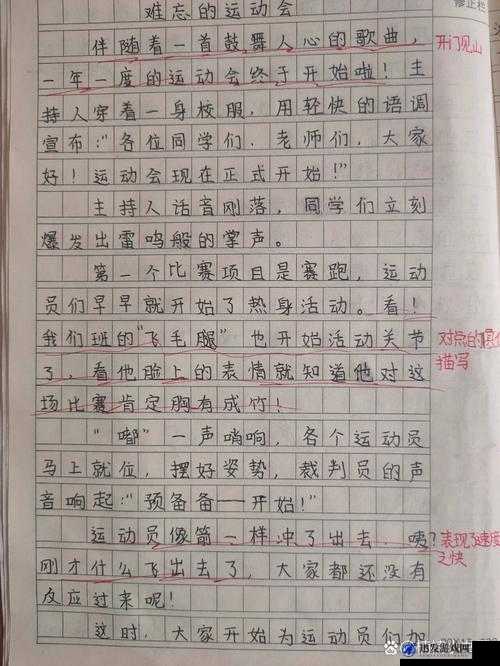 难忘的运动会
修正栏
伴随着一首鼓舞人心的歌曲，
开门见山
一年一度的运动会终于开始啦！主
持人穿着一身校服，用轻快的语调
宣布：“各位同学们、老师们，大家
好！运动会现在正式开始！”
主持人话音刚落，同学们立刻
爆发出雷鸣般的掌声。
第一个比赛项目是赛跑，运动
员们早早就开始了热身活动。看！
我们班的“飞毛腿”也开始活动关节
对点的
描写
了，看他脸上的表情就知道他对这
场比赛肯定胸有成竹！
“嘟”一声哨响，各个运动员
马上就位，摆好姿势，裁判员的声
音响起：“预备备——开始！”
运动员像箭一样冲了出去，咦？
表现了速度
之快
刚才什么飞出去了，大家都还没有
反应过来呢！
这时，大家开始为运动员们加
迅发游戏网